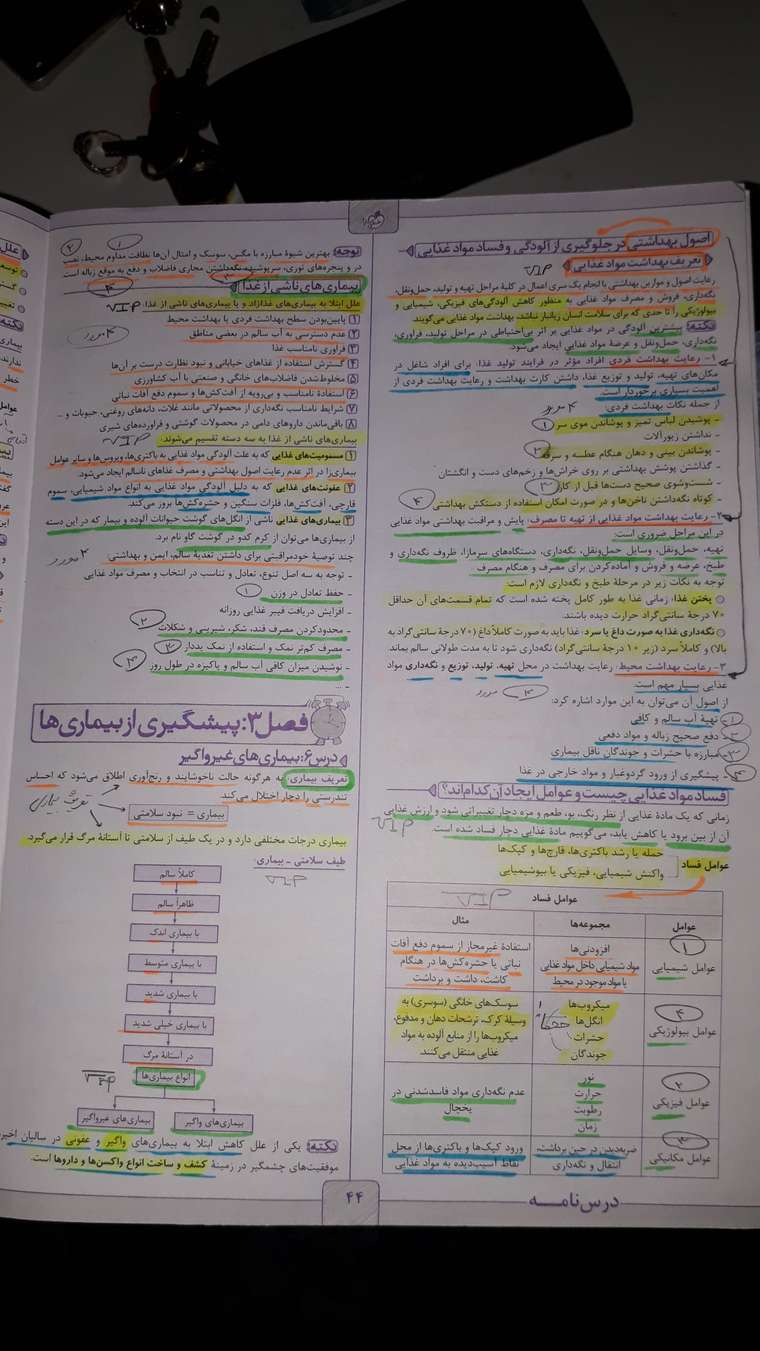 اصول بهداشتی در جلوگیری از آلودگی و فساد مواد غذایی
تعریف بهداشت مواد غذایی
VIP
رعایت اصول و موازین بهداشتی با انجام یک سری اعمال در کلیهٔ مراحل تهیه و تولید، حمل‌ونقل،
نگه‌داری، فروش و مصرف مواد غذایی به منظور کاهش آلودگی‌های فیزیکی، شیمیایی و
بیولوژیکی را تا حدی که برای سلامت انسان زیانبار نباشد، بهداشت مواد غذایی می‌گویند.
نکته: بیشترین آلودگی در مواد غذایی بر اثر بی‌احتیاطی در مراحل تولید، فراوری،
نگه‌داری، حمل‌ونقل و عرضهٔ مواد غذایی ایجاد می‌شود.
۱- رعایت بهداشت فردی افراد مؤثر در فرایند تولید غذا: برای افراد شاغل در
مکان‌های تهیه، تولید و توزیع غذا، داشتن کارت بهداشت و رعایت بهداشت فردی از
اهمیت بسیاری برخوردار است.
از جمله نکات بهداشت فردی: ۴ مورد
- پوشیدن لباس تمیز و پوشاندن موی سر ۱
- نداشتن زیورآلات
- پوشاندن بینی و دهان هنگام عطسه و سرفه ۲
- گذاشتن پوشش بهداشتی بر روی خراش‌ها و زخم‌های دست و انگشتان
- شست‌وشوی صحیح دست‌ها قبل از کار ۳
- کوتاه نگه‌داشتن ناخن‌ها و در صورت امکان استفاده از دستکش بهداشتی ۴
۲- رعایت بهداشت مواد غذایی از تهیه تا مصرف: پایش و مراقبت بهداشتی مواد غذایی
در این مراحل ضروری است:
تهیه، حمل‌ونقل، وسایل حمل‌ونقل، نگه‌داری، دستگاه‌های سرمازا، ظروف نگه‌داری و
طبخ، عرضه و فروش و آماده‌کردن برای مصرف و هنگام مصرف
توجه به نکات زیر در مرحلهٔ طبخ و نگه‌داری لازم است:
پختن غذا: زمانی غذا به طور کامل پخته شده است که تمام قسمت‌های آن حداقل
۷۰ درجهٔ سانتی‌گراد حرارت دیده باشند.
نگه‌داری غذا به صورت داغ یا سرد: غذا باید به صورت کاملاً داغ (۷۰ درجهٔ سانتی‌گراد به
بالا) و کاملاً سرد (زیر ۱۰ درجهٔ سانتی‌گراد) نگه‌داری شود تا به مدت طولانی سالم بماند.
۳- رعایت بهداشت محیط: رعایت بهداشت در محل تهیه، تولید، توزیع و نگه‌داری مواد
غذایی بسیار مهم است.
از اصول آن می‌توان به این موارد اشاره کرد: ۴ مورد
۱- تهیهٔ آب سالم و کافی
۲- دفع صحیح زباله و مواد دفعی
۳- مبارزه با حشرات و جوندگان ناقل بیماری
۴- پیشگیری از ورود گردوغبار و مواد خارجی در غذا
فساد مواد غذایی چیست و عوامل ایجاد آن کدام‌اند؟
زمانی که یک مادهٔ غذایی از نظر رنگ، بو، طعم و مزه دچار تغییراتی شود و ارزش غذایی
آن از بین برود یا کاهش یابد، می‌گوییم مادهٔ غذایی دچار فساد شده است. VIP
عوامل فساد
حمله یا رشد باکتری‌ها، قارچ‌ها و کپک‌ها
واکنش شیمیایی، فیزیکی یا بیوشیمیایی
عوامل فساد VIP
عوامل مجموعه‌ها مثال
۱ عوامل شیمیایی
افزودنی‌ها
مواد شیمیایی داخل مواد غذایی
یا مواد موجود در محیط
استفادهٔ غیرمجاز از سموم دفع آفات
نباتی یا حشره‌کش‌ها در هنگام
کاشت، داشت و برداشت
۴ عوامل بیولوژیکی
میکروب‌ها
انگل‌ها
حشرات
جوندگان
سوسک‌های خانگی (سوسری) به
وسیلهٔ کرک، ترشحات دهان و مدفوع،
میکروب‌ها را از منابع آلوده به مواد
غذایی منتقل می‌کنند.
۲ عوامل فیزیکی
نور
حرارت
رطوبت
زمان
عدم نگه‌داری مواد فاسدشدنی در
یخچال
۳ عوامل مکانیکی
ضربه‌دیدن در حین برداشت،
انتقال و نگه‌داری
ورود کپک‌ها و باکتری‌ها از محل
نقاط آسیب‌دیده به مواد غذایی
درس‌نامه
توجه: بهترین شیوهٔ مبارزه با مگس، سوسک و امثال آن‌ها نظافت مداوم محیط، نصب
در و پنجره‌های توری، سرپوشیده نگه‌داشتن مجاری فاضلاب و دفع به موقع زباله است.
بیماری‌های ناشی از غذا
علل ابتلا به بیماری‌های غذازاد و یا بیماری‌های ناشی از غذا: VIP
۱ پایین‌بودن سطح بهداشت فردی یا بهداشت محیط
۲ عدم دسترسی به آب سالم در بعضی مناطق
۳ فراوری نامناسب غذا
۴ گسترش استفاده از غذاهای خیابانی و نبود نظارت درست بر آن‌ها
۵ مخلوط‌شدن فاضلاب‌های خانگی و صنعتی با آب کشاورزی
۶ استفادهٔ نامناسب و بی‌رویه از آفت‌کش‌ها و سموم دفع آفات نباتی
۷ شرایط نامناسب نگه‌داری از محصولاتی مانند غلات، دانه‌های روغنی، حبوبات و ...
۸ باقی‌ماندن داروهای دامی در محصولات گوشتی و فراورده‌های شیری
بیماری‌های ناشی از غذا به سه دسته تقسیم می‌شوند: VIP
۱ مسمومیت‌های غذایی که به علت آلودگی مواد غذایی به باکتری‌ها، ویروس‌ها و سایر عوامل
بیماری‌زا در اثر عدم رعایت اصول بهداشتی و مصرف غذاهای ناسالم ایجاد می‌شود.
۲ عفونت‌های غذایی که به دلیل آلودگی مواد غذایی به انواع مواد شیمیایی، سموم
قارچی، آفت‌کش‌ها، فلزات سنگین و حشره‌کش‌ها بروز می‌کند.
۳ بیماری‌های غذایی ناشی از انگل‌های گوشت حیوانات آلوده و بیمار که در این دسته
از بیماری‌ها می‌توان از کرم کدو در گوشت گاو نام برد.
چند توصیهٔ خودمراقبتی برای داشتن تغذیهٔ سالم، ایمن و بهداشتی: ۴ مورد
- توجه به سه اصل تنوع، تعادل و تناسب در انتخاب و مصرف مواد غذایی
- حفظ تعادل در وزن ۱
- افزایش دریافت فیبر غذایی روزانه
- محدودکردن مصرف قند، شکر، شیرینی و شکلات ۲
- مصرف کم‌تر نمک و استفاده از نمک یددار ۳
- نوشیدن میزان کافی آب سالم و پاکیزه در طول روز ۴
- ...
فصل ۳: پیشگیری از بیماری‌ها
درس ۶: بیماری‌های غیرواگیر
تعریف بیماری: به هرگونه حالت ناخوشایند و رنج‌آوری اطلاق می‌شود که احساس
تندرستی را دچار اختلال می‌کند.
بیماری = نبود سلامتی
تعریف بیماری
بیماری درجات مختلفی دارد و در یک طیف از سلامتی تا آستانهٔ مرگ قرار می‌گیرد.
طیف سلامتی ـ بیماری:
VIP
کاملاً سالم
ظاهراً سالم
با بیماری اندک
با بیماری متوسط
با بیماری شدید
با بیماری خیلی شدید
در آستانهٔ مرگ
انواع بیماری‌ها
VIP
بیماری‌های واگیر
بیماری‌های غیرواگیر
نکته: یکی از علل کاهش ابتلا به بیماری‌های واگیر و عفونی در سالیان اخیر
موفقیت‌های چشمگیر در زمینهٔ کشف و ساخت انواع واکسن‌ها و داروها است.
۴۴